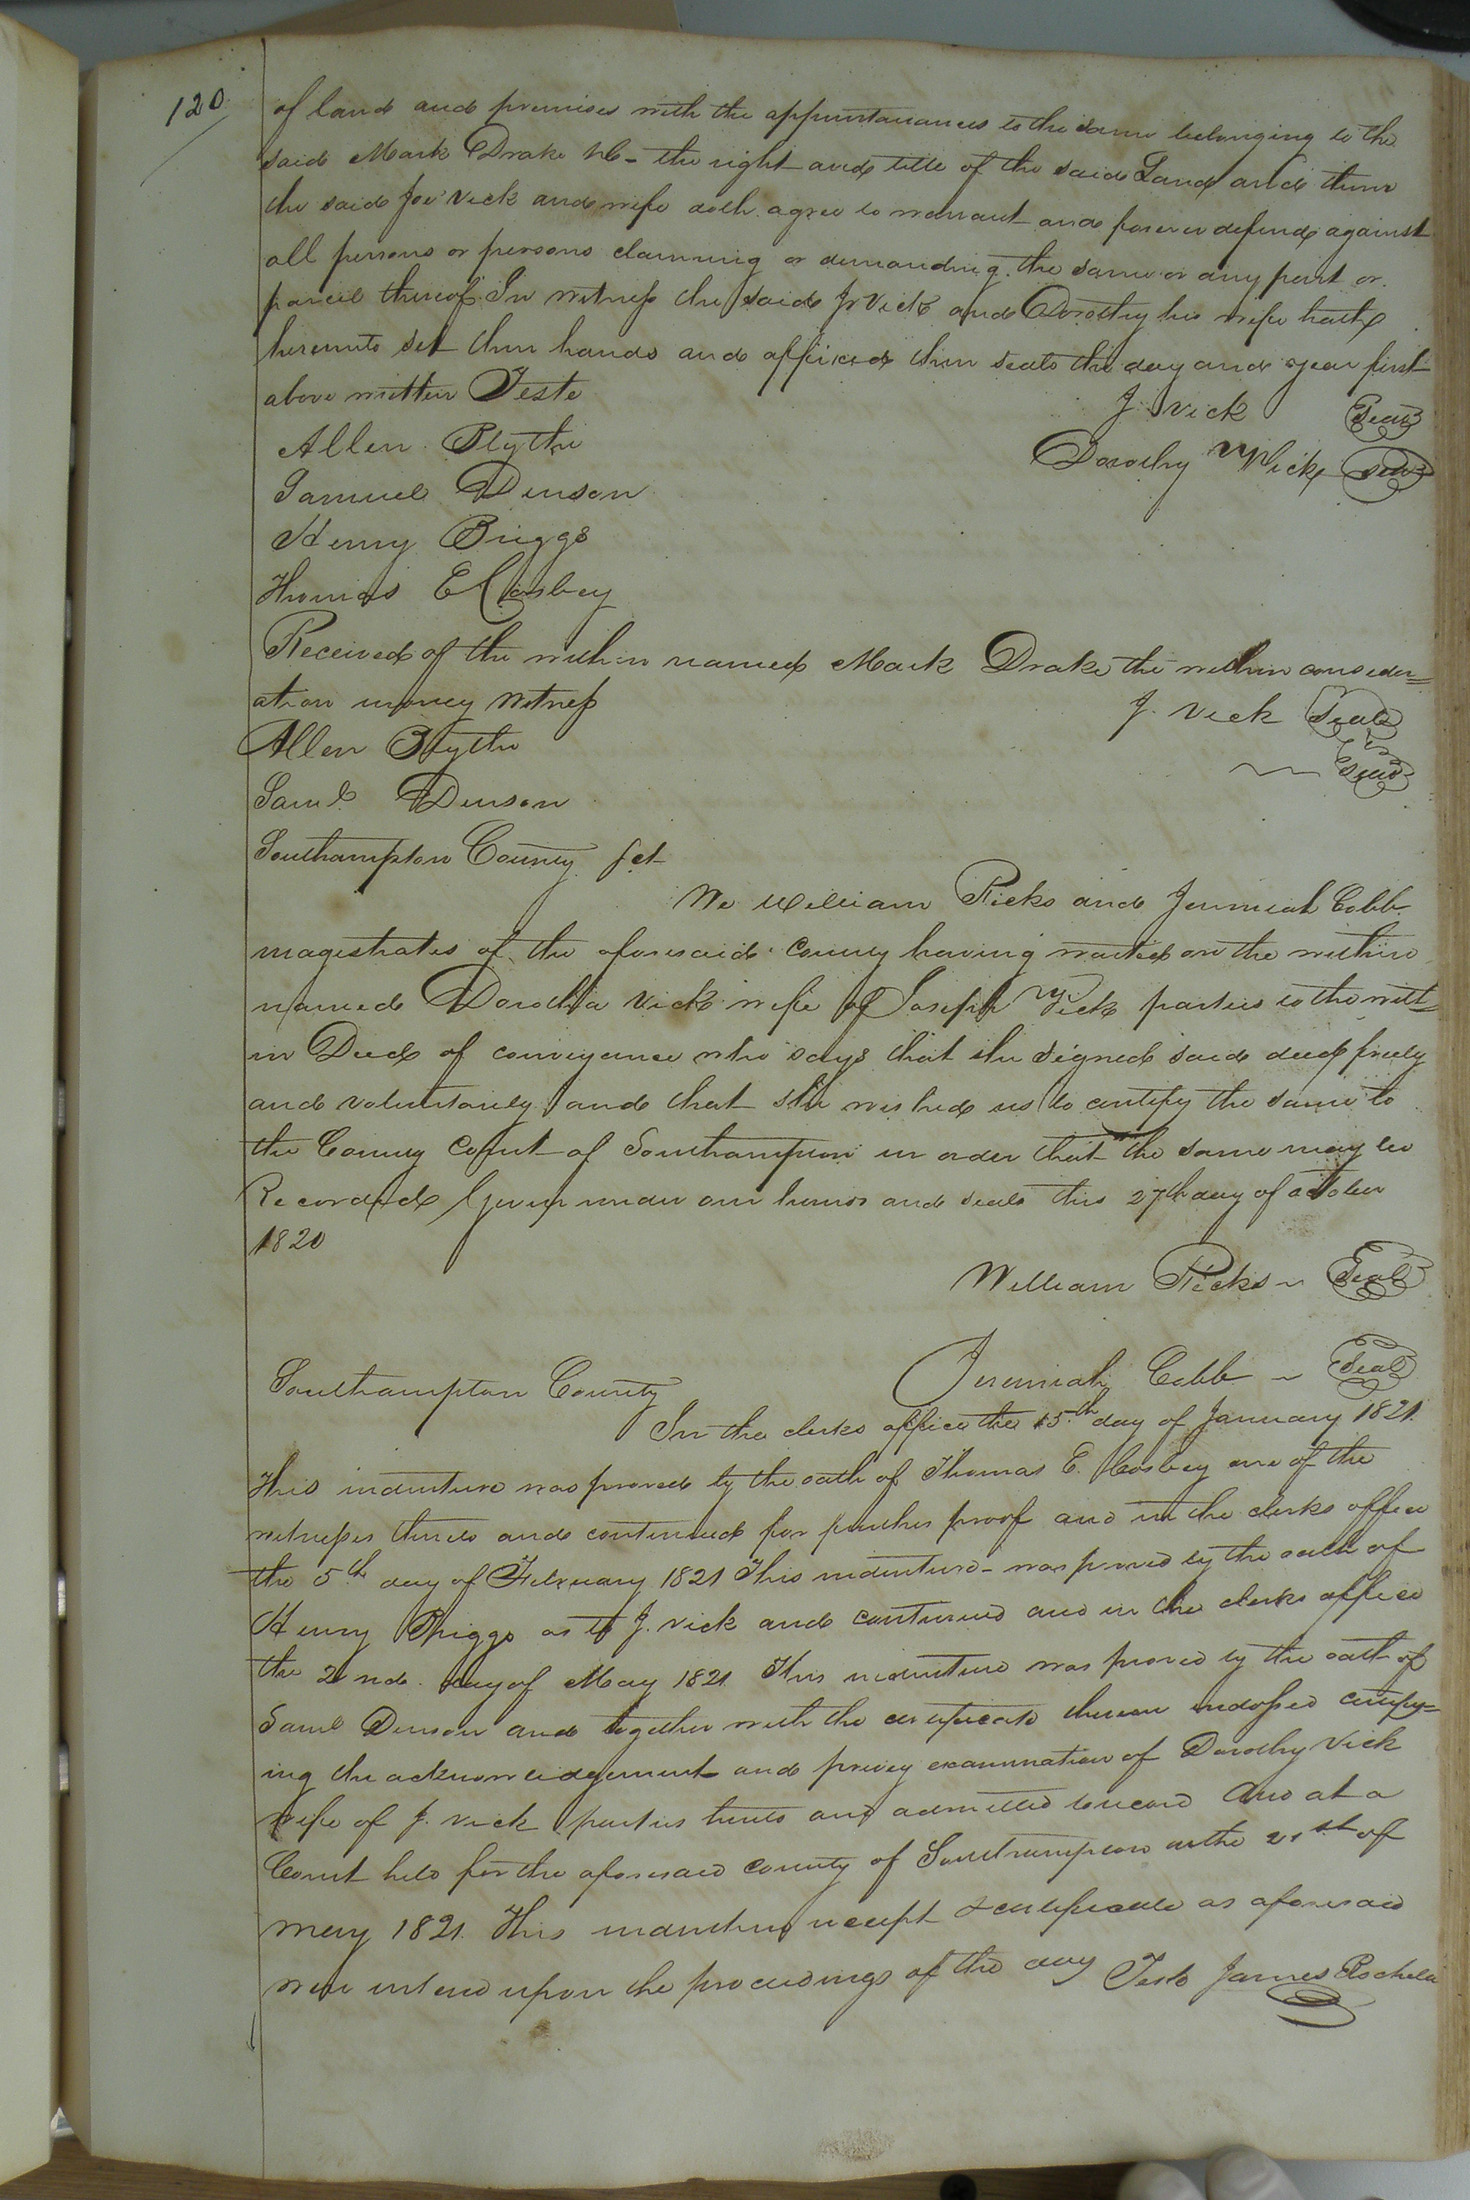 120
of land and premises with the appurntanances to the same belonging to the
said Mark Drake &c - the right and title of the said Land and them
the said Joe Vick and wife doth agree to warrant and forever defend against
all persons or persons claiming or demanding the same or any part or
parcel thereof In witness the said Jo Vick and Dorothy his wife hath
hereunto set thir hands and affixed thir seals the day and year first
above written Teste
J Vick Seal
Allen Blythe
Dorothy Vick Seal
Samuel Denson
Henry Briggs
Thomas E Cosbey
Received of the within named Mark Drake the within consider=
ation money witness
J. Vick Seal
Allen Blythe
Seal
Saml Denson
Southampton County Sct
We William Ricks and Jeremiah Cobb
magestrates of the aforesaid county having waited on the within
named Dorotha Vick wife of Joseph Vick parties to the with=
in Deed of conveyance who says that she signed said deed freely
and voluntarily and that she wished us to certify the same to
the County Court of Southampton in order that the same may be
Recorded Given under our hands and seals this 27th day of october
1820
William Ricks ~ Seal
Jeremiah Cobb ~ Seal
Southampton County
In the clerks office the 15th day of January 1821.
This indenture was proved by the oath of Thomas E. Cosbey one of the
witnesses thereto and continued for further proof and in the clerks office
the 5th day of February 1821 This indenture - was proved by the oath of
Henry Briggs as to J. Vick and continued and in the clerks office
the 2nd day of May 1821 This indenture was proved by the oath of
Saml Denson and together with the certificate thereon indorsed certify=
ing the acknowledgement and privey examination of Dorothy Vick
wife of J. Vick parties hereto and admitted to record And at a
Court held for the aforesaid county of Southampton on the 21st of
May 1821. This indenture receipt & certificate as aforesaid
were entered upon the proceedings of the day Teste James Rochelle